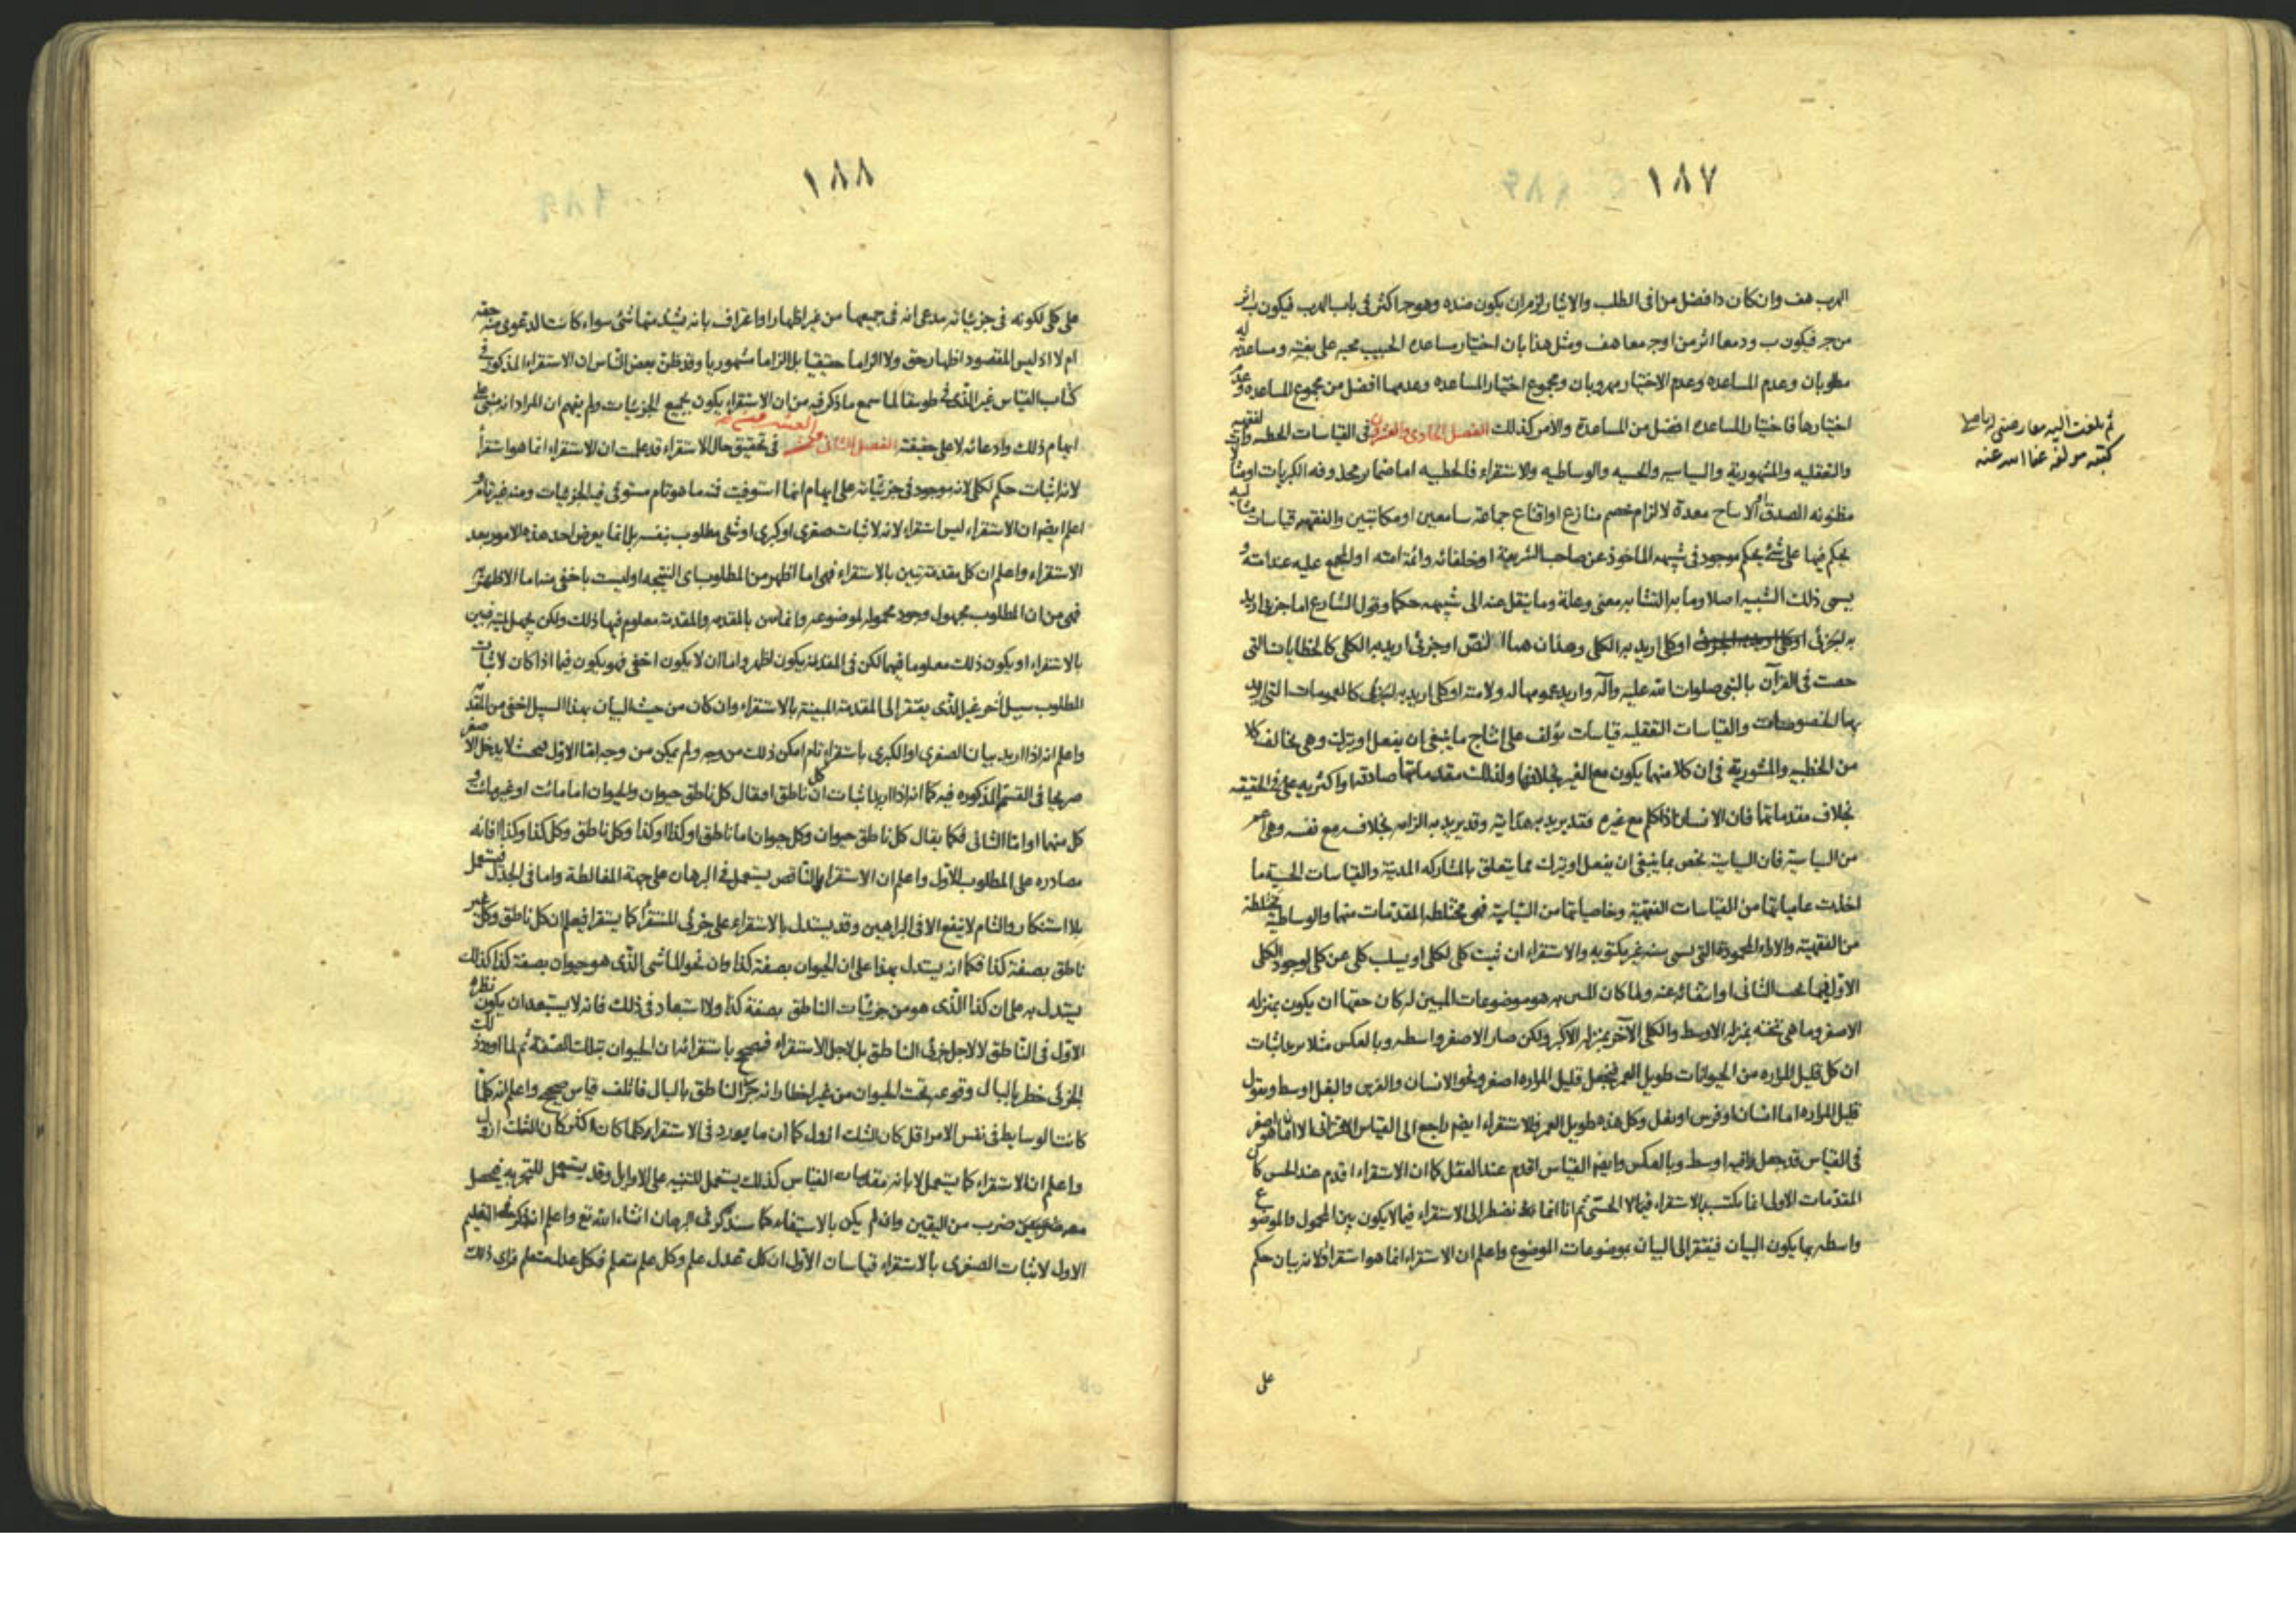 ١٨٧
الهرب هف وان كان د افضل من ا فى الطلب والايثار لزم ان يكون ضده وهو جـ اكثر فى باب الهرب فيكون ب اثر
من جـ فيكون ب و د معا اثر من ا و جـ معا هف ومثل هذا بان اختيار مساعده الحبيب محبه على بغيته ومساعدته له
مطلوبان وعدم المساعده وعدم الاختيار مهروبان ومجموع اختيار المساعده وعدمها افضل من مجموع المساعده وعدم
اختيارها فاختيار المساعده افضل من المساعدة والامر كذلك الفصل الحادى والعشرون فى القياسات الخطبيه والفقهيه
والتعقليه والمشهورية والسياسيه والحسيه والوساطيه والاستقراء فالخطبيه اما ضماير محذوفه الكبريات او
مظنونه الصدق معدة لالزام خصم منازع او اقناع جماعة سامعين او مكاتبين والفقهيه قياسات
يحكم فيها على شئ بحكم موجود فى شبيهه الماخوذ عن صاحب الشريعة او خلفائه وائمة امته او المجمع عليه عند امته و
يسمى ذلك الشبيه اصلا وما به التشابه معنى وعلة وما ينقل عنه الى شبيهه حكما وقول الشارع اما جزئى اريد
به الجزئى او كلى اريد به الكلى وهذان هما النص او جزئى اريد به الكلى كالخطابات التى
خصت فى القرآن بالنبى صلوات الله عليه وآله واريد عمومها له ولامته او كلى اريد به الجزئى كالعمومات التى اريد
بها الخصوصات والقياسات التعقليه قياسات يؤلف على انتاج ما ينبغى ان يفعل او يترك وهى تخالف كلا
من الخطبيه والمشورية فى ان كلا منهما يكون مع الغير بخلافها ولذلك مقدماتها صادقها واكثريه على فى الحقيقه
بخلاف مقدماتهما فان الانسان اذا تكلم مع غيره فقد يريد به هدايته وقد يريد به الزامه بخلافه مع نفسه وهى اعم
من السياسية فان السياسية تخص بما ينبغى ان يفعل او يترك مما يتعلق بالمشاركه المدنية والقياسات الحسية ما
اخذت عامياتها من القياسات الفقهية وخاصياتها من السياسية فهى مختلطه المقدمات منها والوساطية مختلطة
من الفقهية والاراء المحمودة التى ليس بسنة غير مكتوبه والاستقراء ان نثبت كلى لكلى او يسلب كلى عن كلى لوجود الكلى
الاول فيما تحت الثانى او انتفائه عنه ولما كان المبين به هو موضوعات المبين له كان حقها ان يكون بمنزله
الاصغر وما هى تحته بمنزله الاوسط والكلى الاخر بمنزله الاكبر ولكن صار الاصغر واسطه وبالعكس مثلا نريد اثبات
ان كل قليل المراره من الحيوانات طويل العمر فنجعل قليل المراره اصغر ونحو الانسان والفرس والبغل اوسط ونقول
قليل المراره اما انسان او فرس او بغل وكل هذه طويل العمر فالاستقراء ايضا راجع الى القياس الاقترانى الا ان ما هو اصغر
فى القياس قد جعل فيه اوسط وبالعكس وايضا القياس اقدم عند العقل كما ان الاستقراء اقدم عند الحس كان
المقدمات الاولى انما يكتسب بالاستقراء فيما لا الحسى ثم انا انما نضطر الى الاستقراء فيما لا يكون بين المحمول والموضوع
واسطه بها يكون البيان فيفتقر الى البيان بموضوعات الموضوع واعلم ان الاستقراء انما هو استقراء لانه بيان حكم
على
ثم تلفت اليه معارضتى
كتبه مولفه عفا الله عنه
١٨٨
على كلى لكونه فى جزئياته مدعى انه فى جميعها من غير اظهار او اعتراف بانه يشذ منها شئ سواء كانت الدعوى منه حقه
ام لا اذ ليس المقصود اظهار حق ولا الزاما حقيقيا بل الزاما مشهوريا وقد ظن بعض الناس ان الاستقراء المذكور فى
كتاب القياس غير الذى فى طوبيقا لما سمع ما ذكر فيه من ان الاستقراء يكون بجميع الجزئيات ولم يفهم ان المراد انه مبنى على
ايهام ذلك وادعائه لا على حقيقته الفصل الثانى والعشرون فى تحقيق حال الاستقراء قد علمت ان الاستقراء انما هو استقراء
لانه اثبات حكم لكلى لانه موجود فى جزئياته على ايهام انها استوفيت فمنه ما هو تام مستوفى فيه الجزئيات ومنه غير تام و
اعلم ايضا ان الاستقراء ليس استقراء لانه لاثبات صغرى او كبرى او شئ مطلوب بنفسه بل انما يعرض احد هذه الامور بعد
الاستقراء واعلم ان كل مقدمة تبين بالاستقراء فهى اما اظهر من المطلوب اى النتيجه او ليست باخفى منها اما الاظهرية
فهى من ان المطلوب مجهول وجود محموله لموضوعه وانما تبين بالمقدمه والمقدمة معلوم فيها ذلك ولكن يجهل لميته فيبين
بالاستقراء او يكون ذلك معلوما فيهما لكن فى المقدمة يكون اظهر واما ان لا يكون اخفى فهو يكون فيما اذا كان لاثبات
المطلوب سبيل آخر غير الذى يفتقر الى المقدمة المبينة بالاستقراء وان كان من حيث البيان بهذا السبيل اخفى من المقدمة
واعلم انه اذا اريد بيان الصغرى او الكبرى باستقراء تام امكن ذلك من وجه ولم يمكن من وجه اما الاول فبحيث لا يدخل الاصغر
صريحا فى القسم المذكوره فيه كما انه اذا اريد اثبات ان كل ناطق امقال كل ناطق حيوان والحيوان اما مائت او غير مائت و
كل منهما اما الثانى فكما يقال كل ناطق حيوان وكل حيوان اما ناطق او كذا او كذا وكل ناطق وكل كذا وكذا فانه
مصادره على المطلوب الاول واعلم ان الاستقراء الناقص يستعمل فى البرهان على جهة المغالطة واما فى الجدل فيستعمل
بلا استنكار والتام لا ينفع الا فى البراهين وقد يستدل بالاستقراء على جزئى المستقرأ كما يستقرا فيعلم ان كل ناطق وكل غير
ناطق بصفة كذا فكما انه يستدل بهذا على ان الحيوان بصفة كذا وان نحو الماشى الذى هو حيوان بصفة كذا كذلك
يستدل به على ان كذا الذى هو من جزئيات الناطق بصفة كذا ولا استبعاد فى ذلك فانه لا يستبعد ان يكون نظره
الاول فى الناطق لا لاجل جزئى الناطق بل لاجل الاستقراء فيصحح باستقرائه ان الحيوان بتلك الصفة ثم لما اورد ذلك
الجزئى خطر بالبال وقوعه تحت الحيوان من غير اخطار انه جزئى الناطق بالبال فائتلف قياس صحيح واعلم انه كلما
كانت الوسايط فى نفس الامر اقل كان الثلث ازول كما ان ما يورد فى الاستقراء كلما كان اكثر كان الثلث ازول
واعلم ان الاستقراء كما يستعمل لابانه مقدمات القياس كذلك يستعمل للتنبيه على الاوايل وقد يستعمل للتجربه فيحصل
معه ضرب من اليقين وان لم يكن بالاستيفاء كما سنذكر فى البرهان انشاء الله تع واعلم انه ذكر فى التعليم
الاول لاثبات الصغرى بالاستقراء قياسات الاول ان كل عدل علم وكل علم متعلم فكل عدل متعلم فراى ذلك